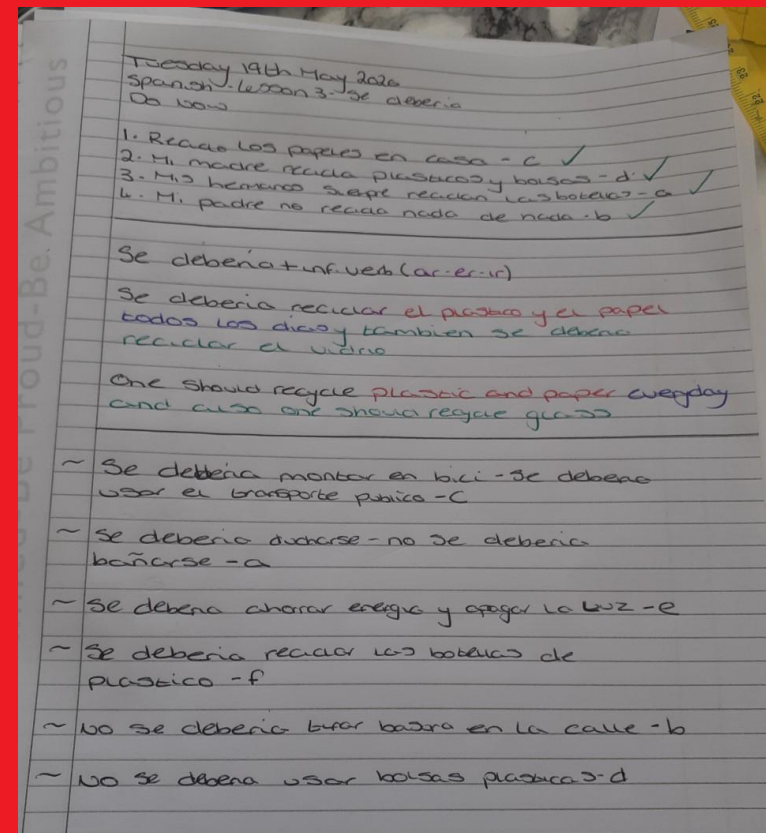 Tuesday 19th May 2020
Spanish - Lesson 3 - se deberia
Do now
1. Reciclo los papeles en casa - c ✓
2. Mi madre recicla plasticos y bolsas - d ✓
3. Mis hermanos siempre reciclan las botellas - a ✓
4. Mi padre no recicla nada de nada - b ✓
Se deberia + inf. verb (ar-er-ir)
Se deberia reciclar el plastico y el papel
todos los dias y tambien se deberia
reciclar el vidrio
One should recycle plastic and paper everyday
and also one should recycle glass
~ Se deberia montar en bici - Se deberia
usar el transporte publico - C
~ Se deberia ducharse - no se deberia
bañarse - a
~ Se deberia ahorrar energia y apagar la luz - e
~ Se deberia reciclar las botellas de
plastico - f
~ No se deberia tirar basura en la calle - b
~ No se deberia usar bolsas plasticas - d
Be Proud - Be. Ambitious